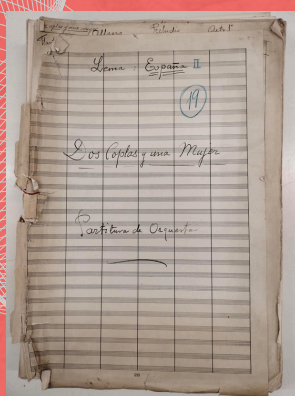 Preludio Acto 1º
Lema: España II
19
Dos Coplas y una Mujer
Partitura de Orquesta